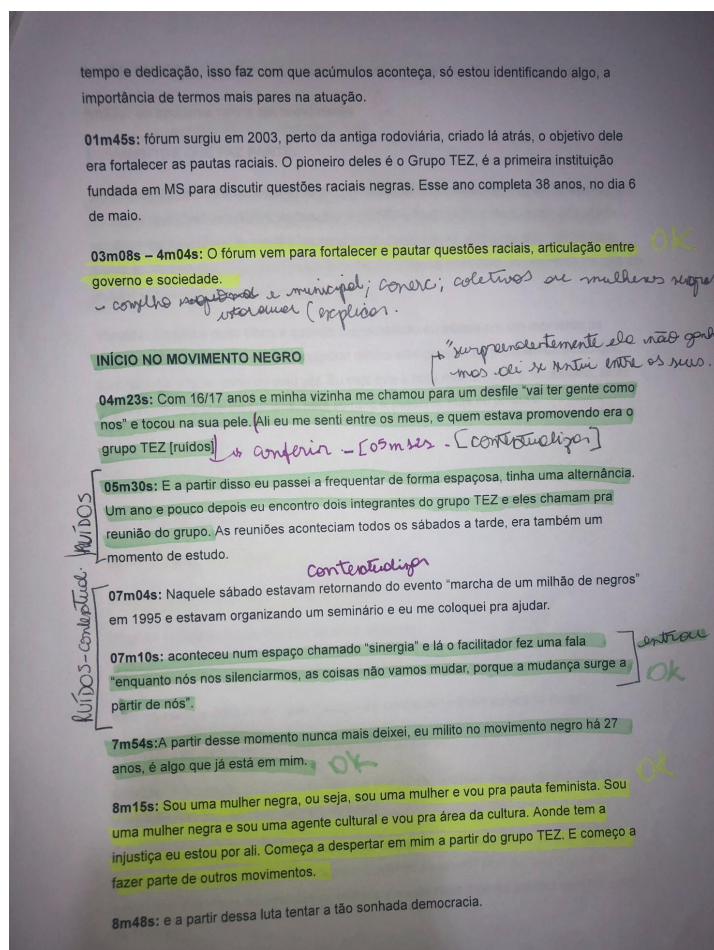 tempo e dedicação, isso faz com que acúmulos aconteça, só estou identificando algo, a
importância de termos mais pares na atuação.
01m45s: fórum surgiu em 2003, perto da antiga rodoviária, criado lá atrás, o objetivo dele
era fortalecer as pautas raciais. O pioneiro deles é o Grupo TEZ, é a primeira instituição
fundada em MS para discutir questões raciais negras. Esse ano completa 38 anos, no dia 6
de maio.
03m08s – 4m04s: O fórum vem para fortalecer e pautar questões raciais, articulação entre
OK
governo e sociedade.
- conselho e municipal; conerc; coletivos de mulheres negras
(explicar.
INÍCIO NO MOVIMENTO NEGRO
"surpreendentemente ela não ganh
mas ali se sentiu entre os seus.
04m23s: Com 16/17 anos e minha vizinha me chamou para um desfile "vai ter gente como
nos" e tocou na sua pele. (Ali eu me senti entre os meus, e quem estava promovendo era o
grupo TEZ [ruídos] conferir - [05m - [contextualizar]
RUÍDOS
05m30s: E a partir disso eu passei a frequentar de forma espaçosa, tinha uma alternância.
Um ano e pouco depois eu encontro dois integrantes do grupo TEZ e eles chamam pra
reunião do grupo. As reuniões aconteciam todos os sábados a tarde, era também um
momento de estudo.
contextualizar
RUÍDOS-contextual.
07m04s: Naquele sábado estavam retornando do evento "marcha de um milhão de negros"
em 1995 e estavam organizando um seminário e eu me coloquei pra ajudar.
07m10s: aconteceu num espaço chamado "sinergia" e lá o facilitador fez uma fala
"enquanto nós nos silenciarmos, as coisas não vamos mudar, porque a mudança surge a
partir de nós".
OK
7m54s:A partir desse momento nunca mais deixei, eu milito no movimento negro há 27
anos, é algo que já está em mim. OK
OK
8m15s: Sou uma mulher negra, ou seja, sou uma mulher e vou pra pauta feminista. Sou
uma mulher negra e sou uma agente cultural e vou pra área da cultura. Aonde tem a
injustiça eu estou por ali. Começa a despertar em mim a partir do grupo TEZ. E começo a
fazer parte de outros movimentos.
8m48s: e a partir dessa luta tentar a tão sonhada democracia.